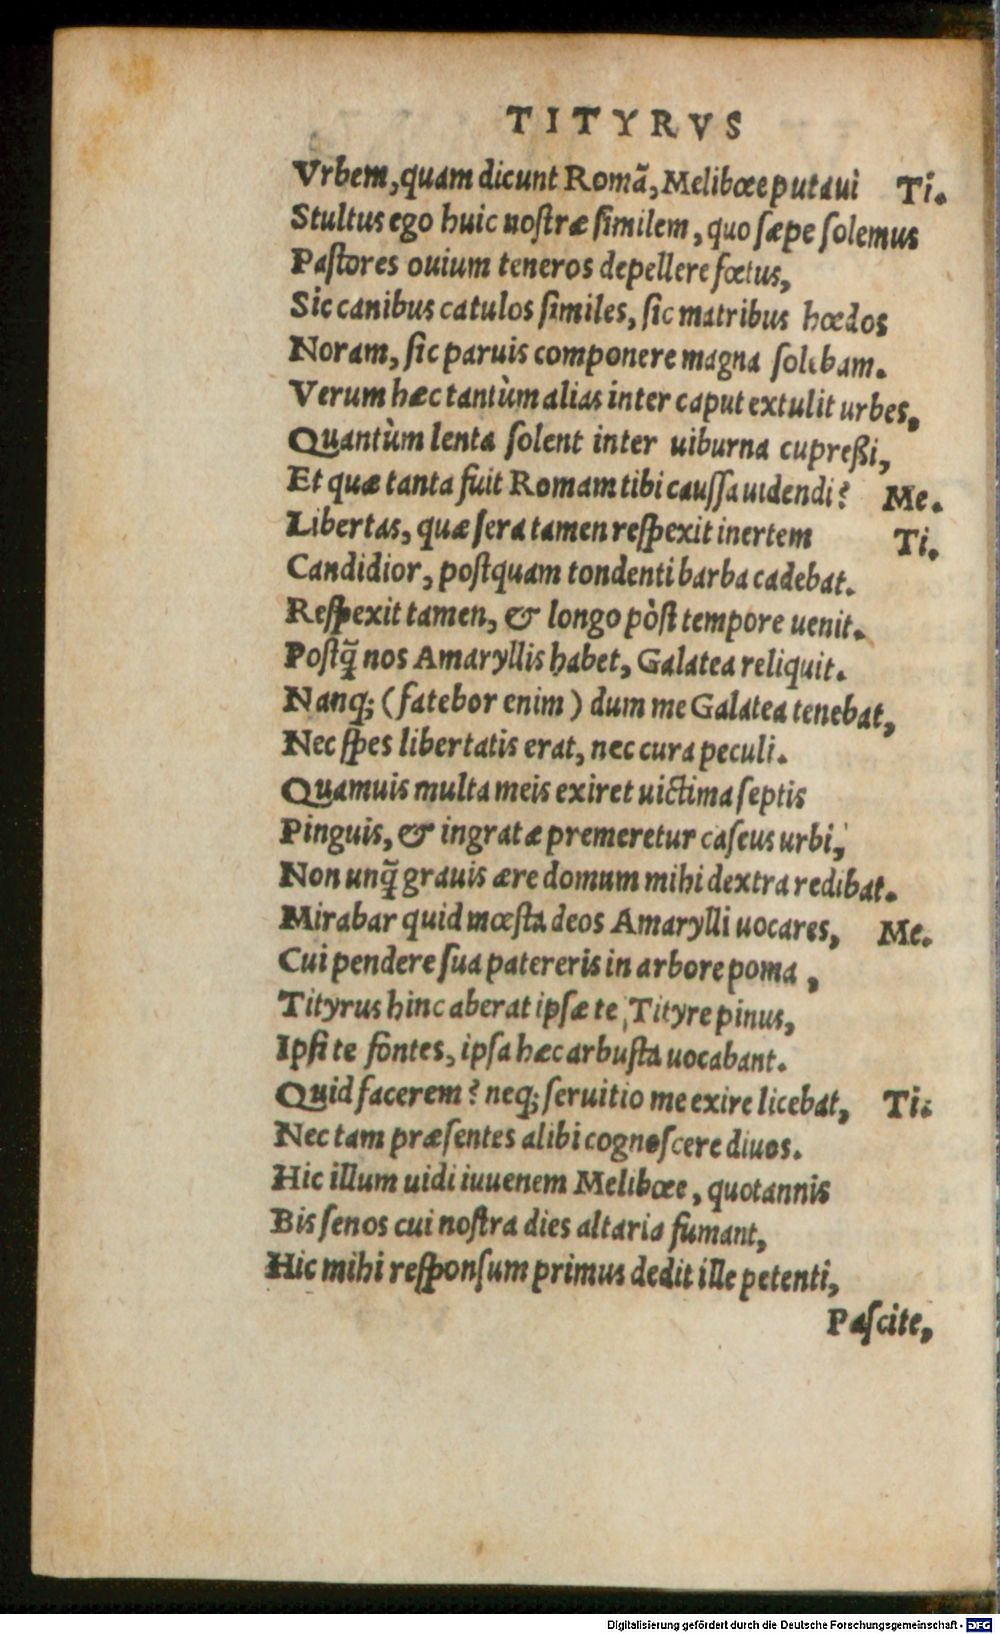 TITYRVS
Vrbem, quam dicunt Romã, Melibœe putaui Ti.
Stultus ego huic noſtræ ſimilem, quo ſæpe ſolemus
Paſtores ouium teneros depellere fœtus,
Sic canibus catulos ſimiles, ſic matribus hœdos
Noram, ſic paruis componere magna ſolebam.
Verum hæc tantùm alias inter caput extulit urbes,
Quantùm lenta ſolent inter uiburna cupreßi,
Et quæ tanta fuit Romam tibi cauſſa uidendi? Me.
Libertas, quæ ſera tamen reſpexit inertem Ti.
Candidior, poſtquam tondenti barba cadebat.
Reſpexit tamen, & longo pòſt tempore uenit.
Poſtq̃ nos Amaryllis habet, Galatea reliquit.
Nanq; (fatebor enim) dum me Galatea tenebat,
Nec ſpes libertatis erat, nec cura peculi.
Quamuis multa meis exiret uictima ſeptis
Pinguis, & ingratæ premeretur caſeus urbi,
Non unq̃ grauis ære domum mihi dextra redibat.
Mirabar quid mœſta deos Amarylli uocares, Me.
Cui pendere ſua patereris in arbore poma,
Tityrus hinc aberat ipſæ te, Tityre pinus,
Ipſi te fontes, ipſa hæc arbuſta uocabant.
Quid facerem? neq; ſeruitio me exire licebat, Ti.
Nec tam præſentes alibi cognoſcere diuos.
Hic illum uidi iuuenem Melibœe, quotannis
Bis ſenos cui noſtra dies altaria fumant,
Hic mihi reſponſum primus dedit ille petenti,
Paſcite,
Digitalisierung gefördert durch die Deutsche Forschungsgemeinschaft - DFG